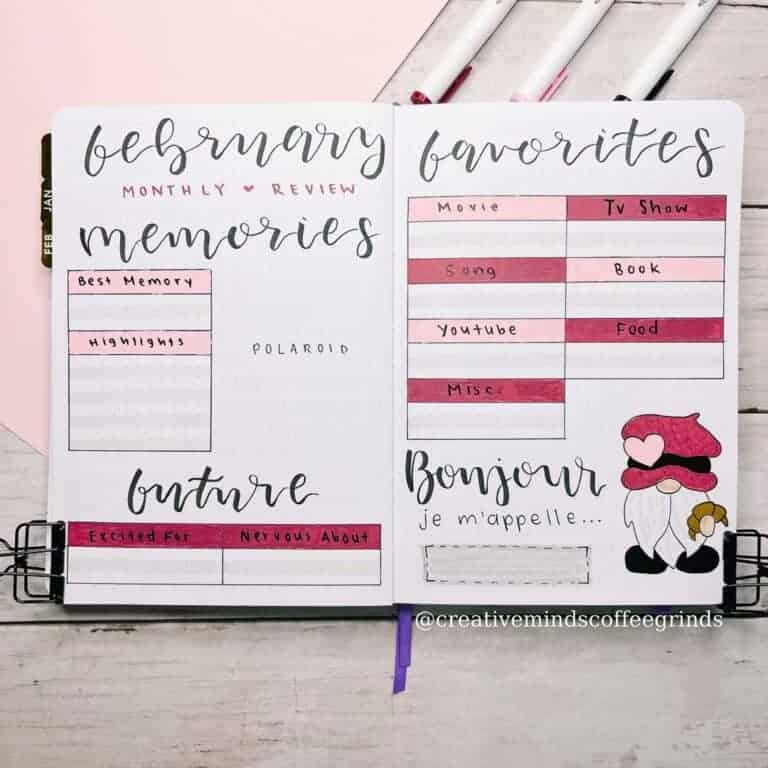 february
MONTHLY ♥ REVIEW
memories
JAN
FEB
Best Memory
Highlights
POLAROID
future
Excited For
Nervous About
favorites
Movie
Tv Show
Song
Book
Youtube
Food
Misc.
Bonjour
je m'appelle...
@creativemindscoffeegrinds